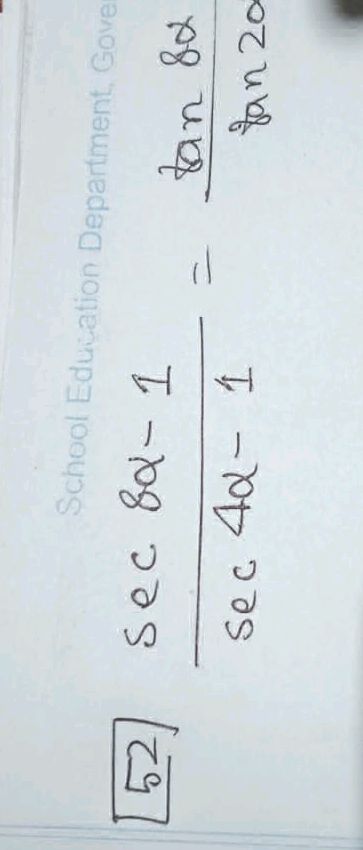 School Education Department, Gove
52 sec 8α - 1 / sec 4α - 1 = tan 8α / tan 2α